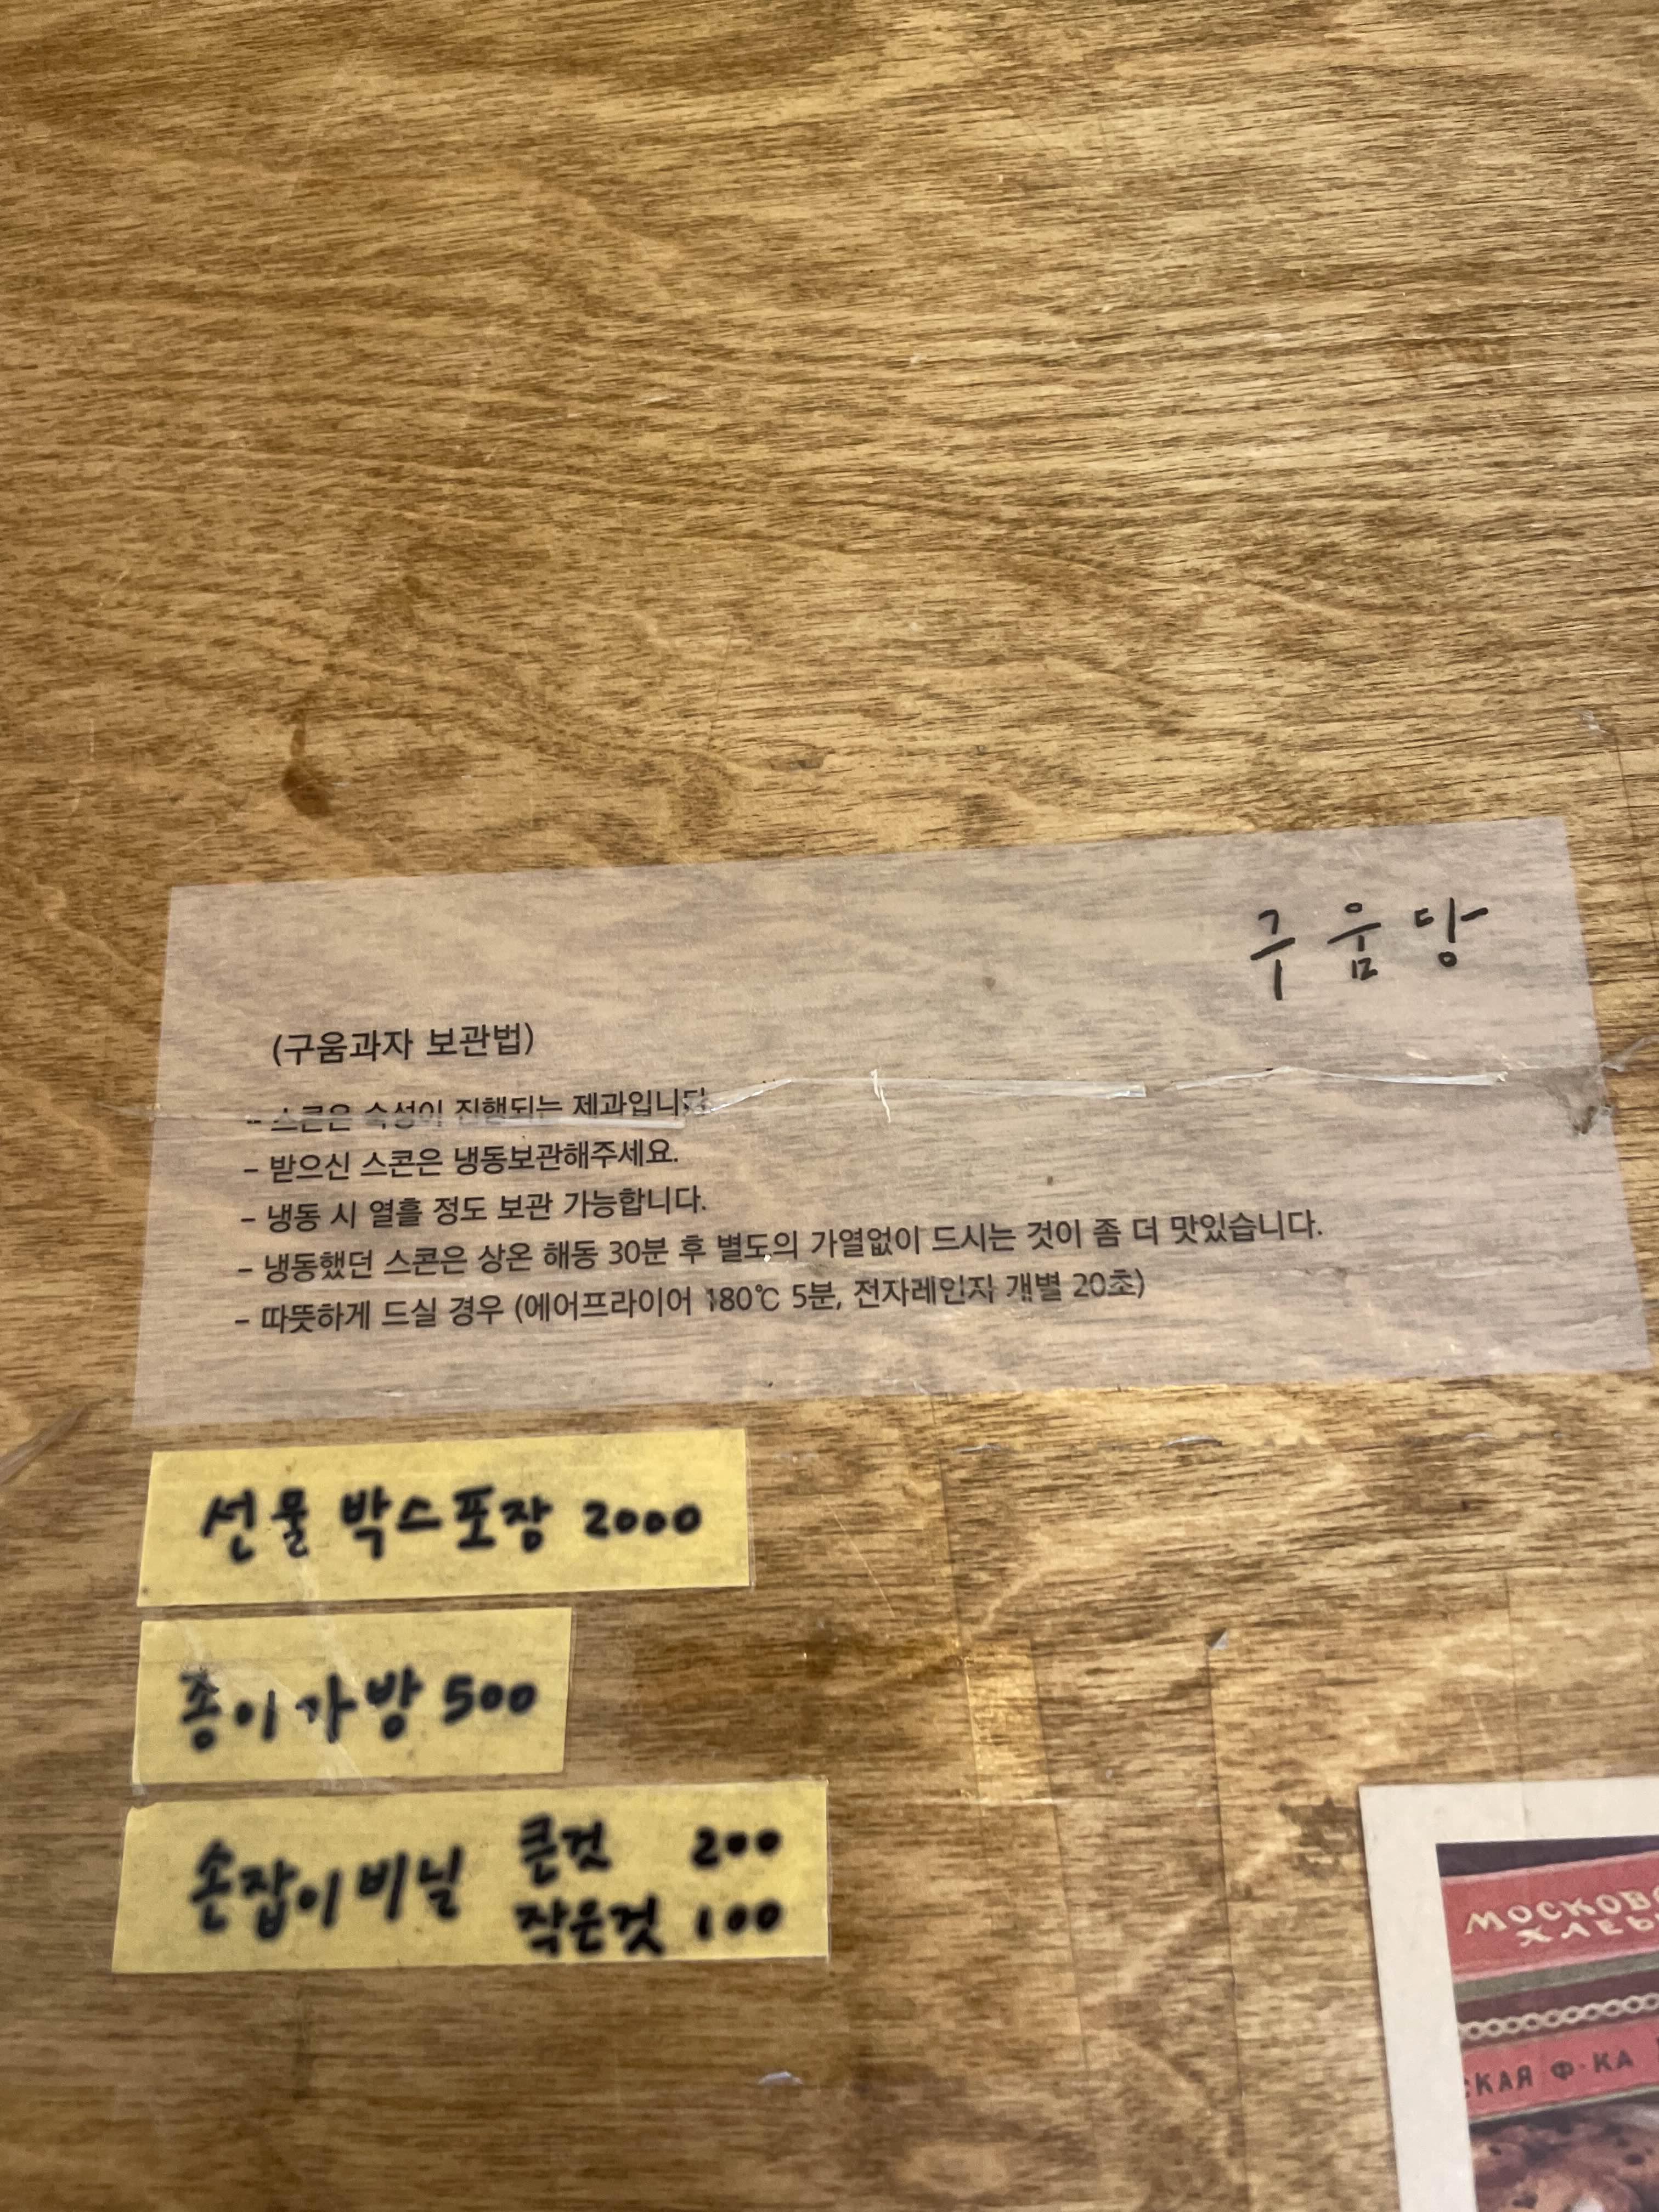 구움당
(구움과자 보관법)
- 스콘은 숙성이 진행되는 제과입니다.
- 받으신 스콘은 냉동보관해주세요.
- 냉동 시 열흘 정도 보관 가능합니다.
- 냉동했던 스콘은 상온 해동 30분 후 별도의 가열없이 드시는 것이 좀 더 맛있습니다.
- 따뜻하게 드실 경우 (에어프라이어 180℃ 5분, 전자레인지 개별 20초)
선물 박스포장 2000
종이가방 500
손잡이비닐 큰것 200
작은것 100
Ф-КА